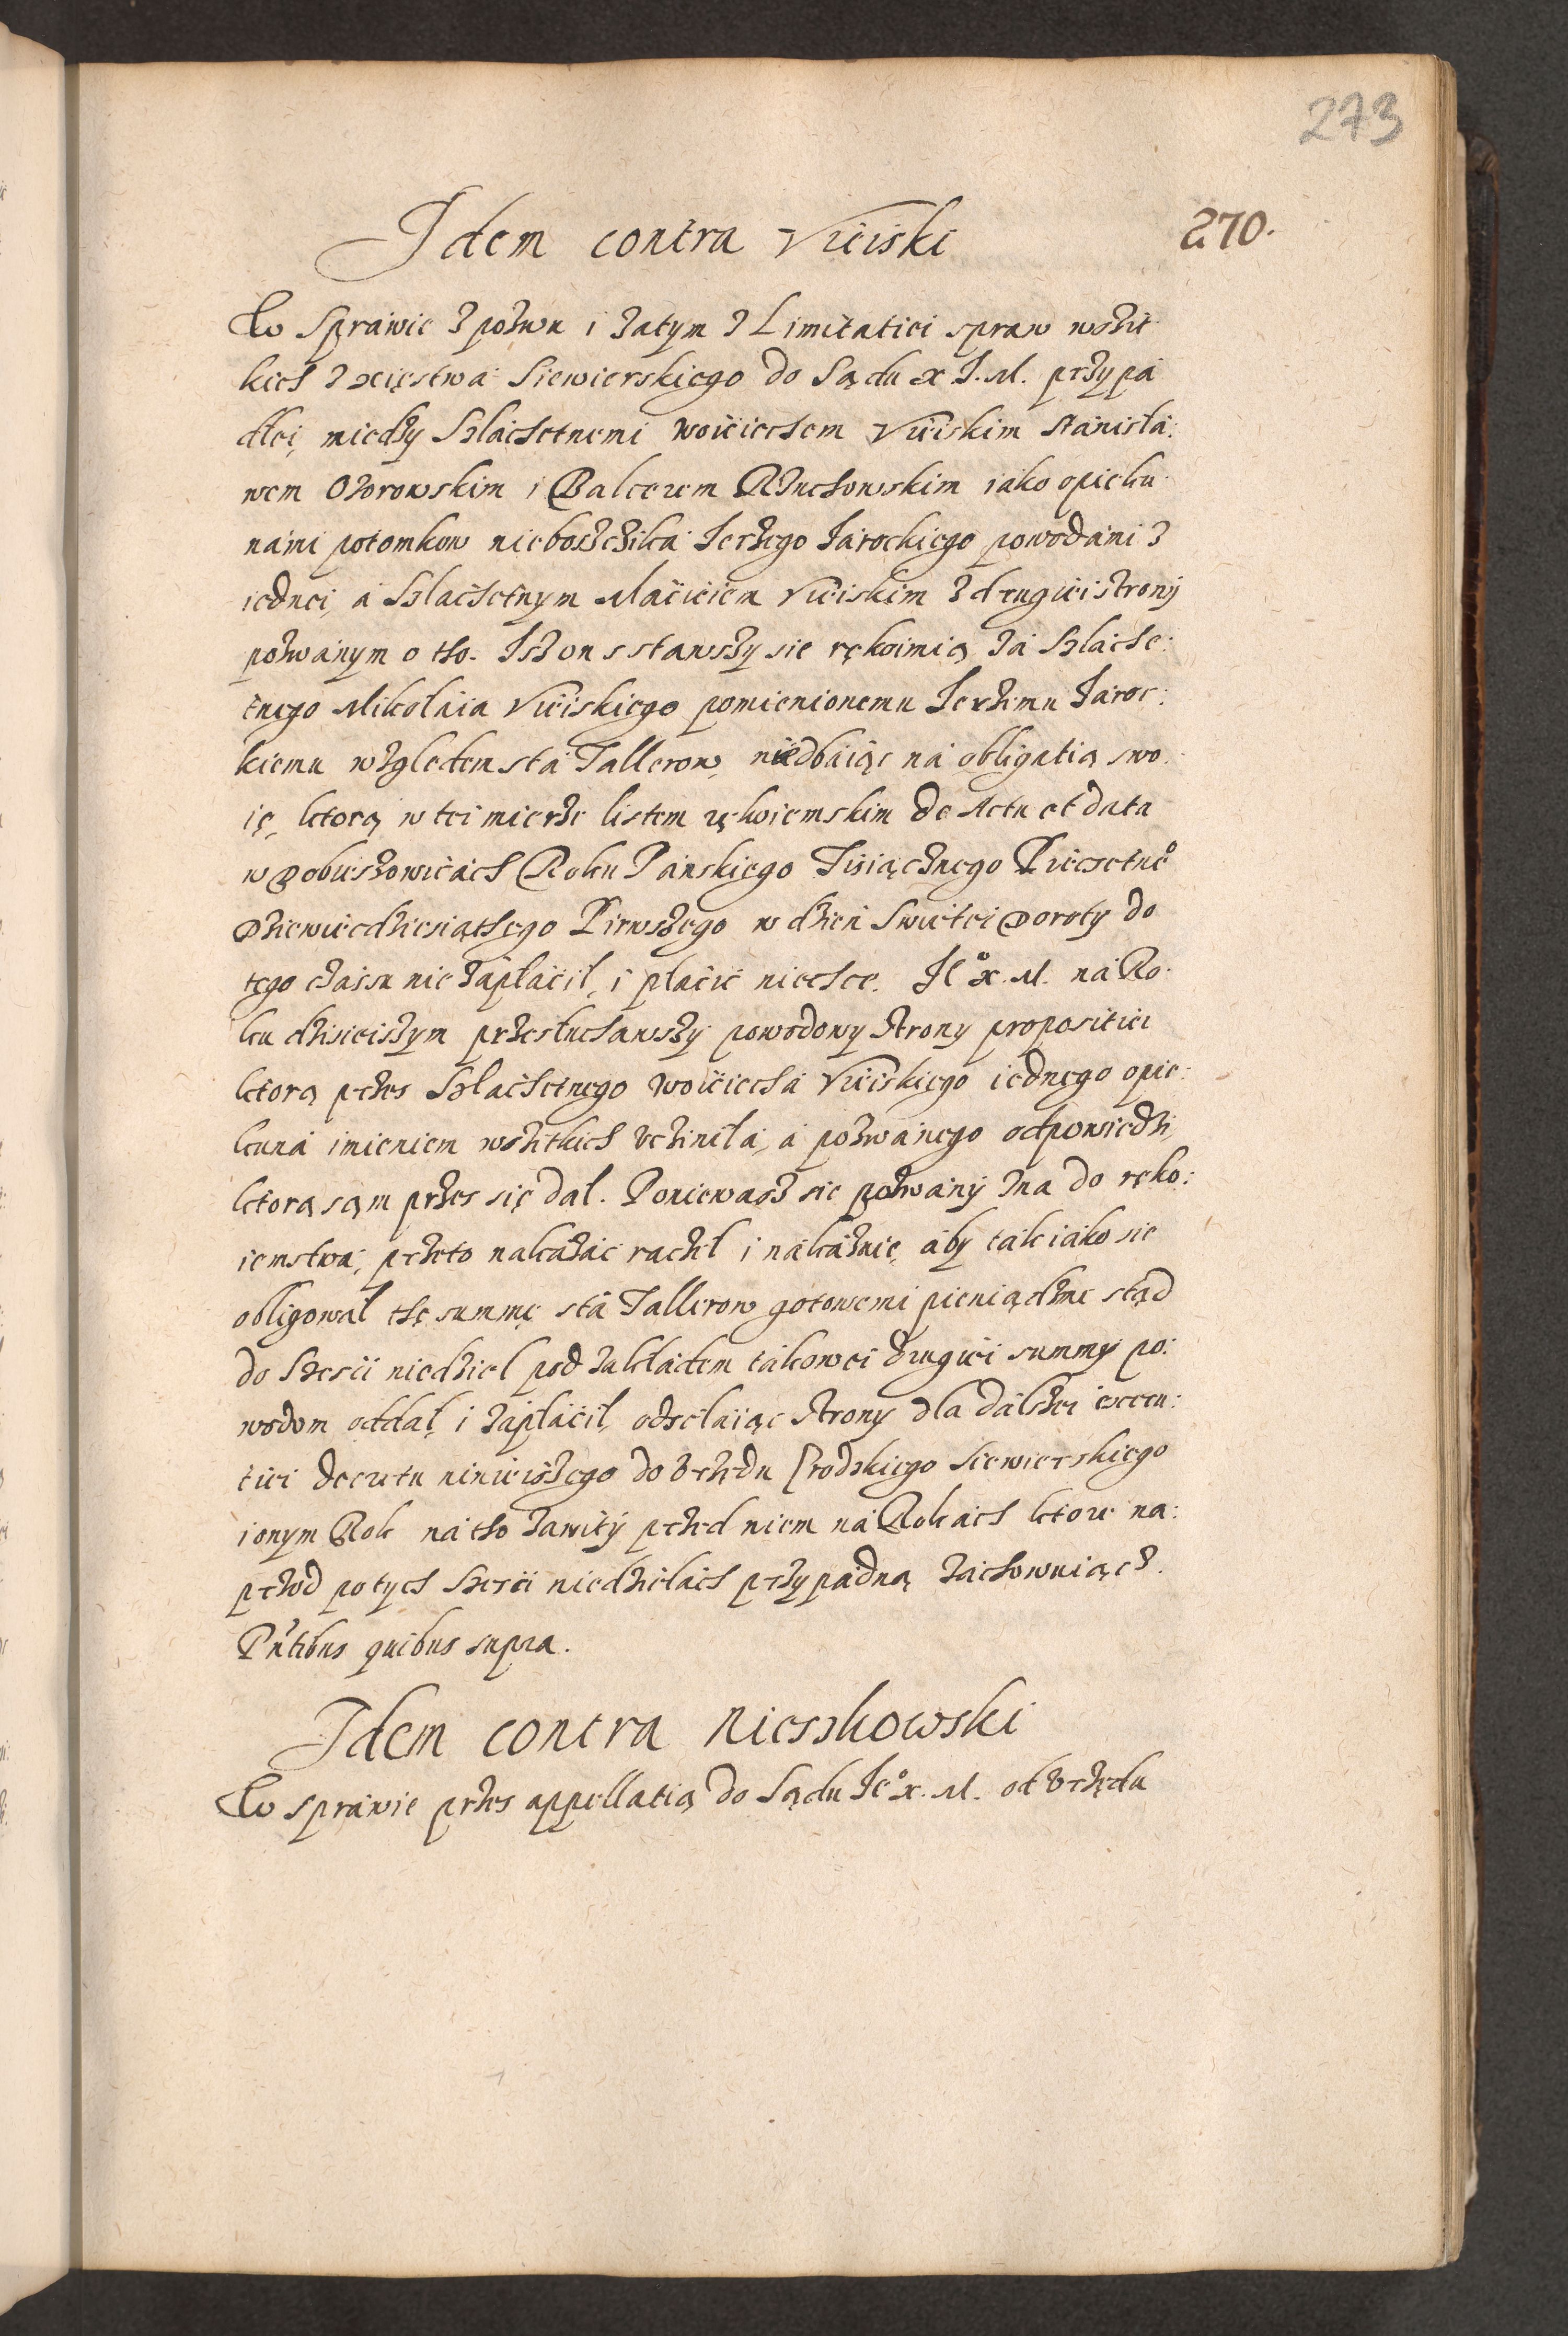 273
Idem contra Vieiski 270.
W Sprawie z pozwu i zatym z Limitatiei spraw wszit
kich z xięstwa Siewierskiego do Sądu x J. M. przypa
dłei, miedzy Szlachetnemi Woiciechem Vieiskim Stanisła:
wem Ozorowskim i Balcerem Rzuchowskim iako opieku
nami potomkow nieboszczika Jerzego Jarockiego powodami z
iednei, a Szlachetnym Macieiem Vieiskim z drugiei strony
pozwanym o tho. Isz on sstawszy sie rękoimią za Szlache:
tnego Mikolaia Vieiskiego pomienionemu Jerzemu Jaroc:
kiemu względem sta Tallerow, niedbaiąc na obligatią swo
ię, ktorą w tei mierze listem rękoiemskim de Actu et data
w Dobieszowicach Roku Panskiego Tisiącznego Piecsetnº
Dziewiecdziesiąthego Pirwszego w dzien Swietei Doroty do
tego czassu nie zapłacił, i płacic niechce. Jeº x. M. na Ro
ku dzisieiszym przesłuchawszy powodowy strony propositiei
ktorą przes Szlachetnego Woiciecha Vieiskiego iednego opie:
kuna imieniem wszitkich vczinila, a pozwanego odpowiedzi,
ktorą sąm przes się dał. Poniewasz sie pozwany zna do ręko:
iemstwa, przeto nakazac raczil i nakazuie, aby tak iako sie
obligował thę summę sta Tallerow gotowemi pieniądzmi stąd
do szesci niedziel pod zakładem takowei drugiei summy po:
wodom oddał, i zapłacił, odsełaiąc strony dla dalszei execu:
tiei decretu ninieiszego do vrzędu Grodzkiego Siewierskiego
i onym Rok na tho zawity przed niem na Rokach ktore na:
przod po tych szesci niedzielach przypadną zachowuiącz.
Pñtibus quibus supra.
Idem contra Nieszkowski
W sprawie przes appellatią do Sądu Jeº x. M. od vrzędu